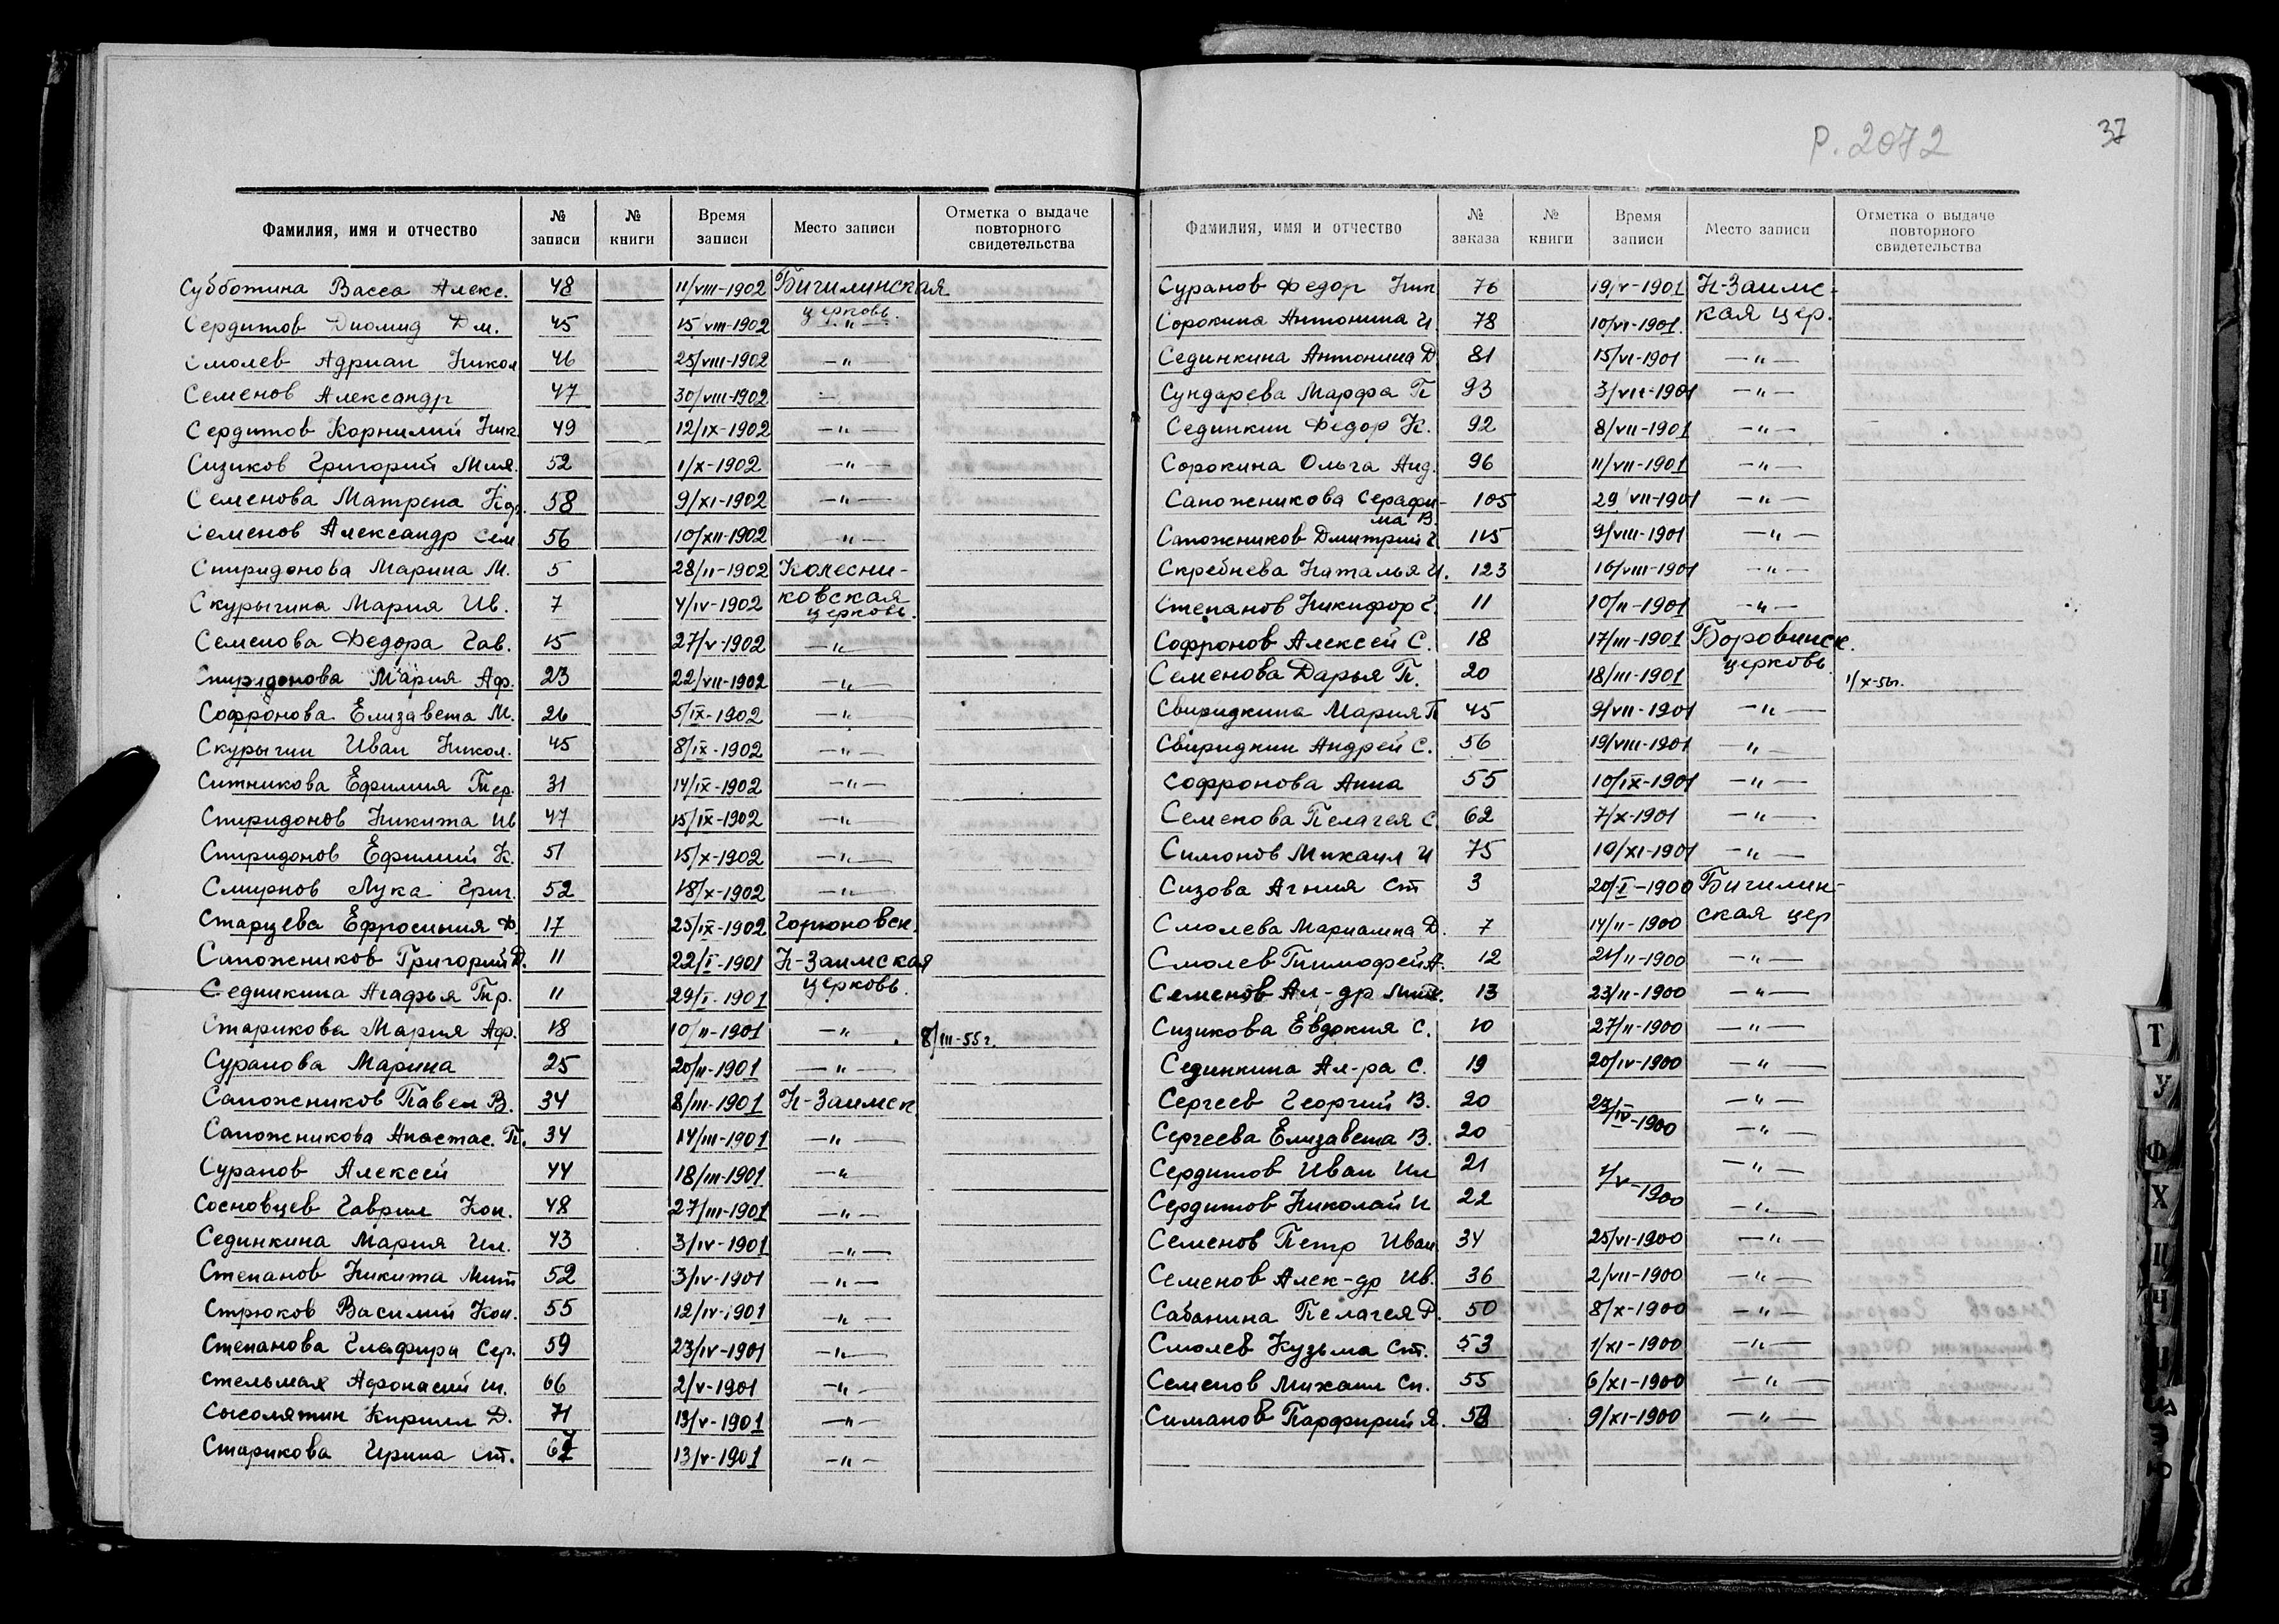 Р. 2072
37
Фамилия, имя и отчество № записи № книги Время записи Место записи Отметка о выдаче повторного свидетельства
Субботина Васса Алекс. 48 11/VIII-1902 Бигилинская
Сердитов Диомид Дм. 45 15/VIII-1902 церковь. -"-
Смолев Адриан Никол 46 25/VIII-1902 -"-
Семенов Александр 47 30/VIII-1902 -"-
Сердитов Корнилий Ник. 49 12/IX-1902 -"-
Сизиков Григорий 52 1/X-1902 -"-
Семенова Матрена 58 9/XI-1902 -"-
Семенов Александр Сем 56 10/XII-1902 -"-
Спиридонова Марина М. 5 28/II-1902 Колесни-
Скурыгина Мария Ив. 7 4/IV-1902 ковская церковь.
Семенова Федора Гав. 15 27/V-1902 -"-
Спиридонова Мария Аф. 23 22/VII-1902 -"-
Софронова Елизавета М. 26 5/IX-1902 -"-
Скурыгин Иван Никол. 45 8/IX-1902 -"-
Ситникова Ефимия Тер. 31 14/IX-1902 -"-
Спиридонов Никита Ив 47 15/IX-1902 -"-
Спиридонов Ефимий К. 51 15/X-1902 -"-
Смирнов Лука Григ. 52 18/X-1902 -"-
Старцева Ефросиния Ф 17 25/IX-1902 Горюновск.
Сапожников Григорий Д. 11 22/I-1901 Н-Заимская
Сединкина Агафья Пр. 11 29/I-1901 церковь.
Старикова Мария Аф. 18 10/II-1901 -"- 8/III-55г.
Суранова Марина 25 20/II-1901 -"-
Сапожников Павел В. 34 8/III-1901 Н-Заимск
Сапожникова Анастас. П. 34 14/III-1901 -"-
Суранов Алексей 44 18/III-1901 -"-
Сосновцев Гаврил Кон. 48 27/III-1901 -"-
Сединкина Мария Ил. 43 3/IV-1901 -"-
Степанов Никита Мит 52 3/IV-1901 -"-
Стрюков Василий Кон. 55 12/IV-1901 -"-
Степанова Глафира Сер. 59 23/IV-1901 -"-
Стельмах Афонасий 66 2/V-1901 -"-
Сысолятин Кирилл Д. 71 13/V-1901 -"-
Старикова Ирина Ст. 67 13/V-1901 -"-
Фамилия, имя и отчество № заказа № книги Время записи Место записи Отметка о выдаче повторного свидетельства
Суранов Федор Ник 76 19/V-1901 Н-Заимс-
Сорокина Антонина И 78 10/VI-1901. кая цер.
Сединкина Антонина Д 81 15/VI-1901 -"-
Сундарева Марфа П 93 3/VII-1901 -"-
Сединкин Федор К. 92 8/VII-1901 -"-
Сорокина Ольга Анд. 96 11/VII-1901 -"-
Сапожникова Серафи-
ма В. 105 29/VII-1901 -"-
Сапожников Дмитрий Г 115 9/VIII-1901 -"-
Скребнева Наталья И. 123 16/VIII-1901 -"-
Степанов Никифор С. 11 10/II-1901 -"-
Софронов Алексей С. 18 17/III-1901 Боровинск.
Семенова Дарья П. 20 18/III-1901 церковь 1/X-56г.
Свиридкина Мария П 45 9/VII-1901 -"-
Свиридкин Андрей С. 56 19/VIII-1901 -"-
Софронова Анна 55 10/IX-1901 -"-
Семенова Пелагея С. 62 7/X-1901 -"-
Симонов Михаил И 75 10/XI-1901 -"-
Сизова Агния Ст 3 20/I-1900 Бигилин-
Смолева Мариамна Д. 7 14/II-1900 ская цер
Смолев Тимофей А. 12 21/II-1900 -"-
Семенов Ал-др Мих. 13 23/II-1900 -"-
Сизикова Евдокия С. 10 27/II-1900 -"-
Сединкина Ал-ра С. 19 20/IV-1900 -"-
Сергеев Георгий В. 20 23/IV-1900 -"-
Сергеева Елизавета В. 20 -"-
Сердитов Иван Ил 21 -"-
Сердитов Николай И 22 7/V-1900 -"-
Семенов Петр Иван 34 25/VI-1900 -"-
Семенов Алек-др Ив. 36 2/VII-1900 -"-
Сабанина Пелагея Ф. 50 8/X-1900 -"-
Смолев Кузьма Ст. 53 1/XI-1900 -"-
Семенов Михаил Сп. 55 6/XI-1900 -"-
Симанов Парфирий Я. 58 9/XI-1900 -"-
Т
У
Ф
Х
Ц
Ч